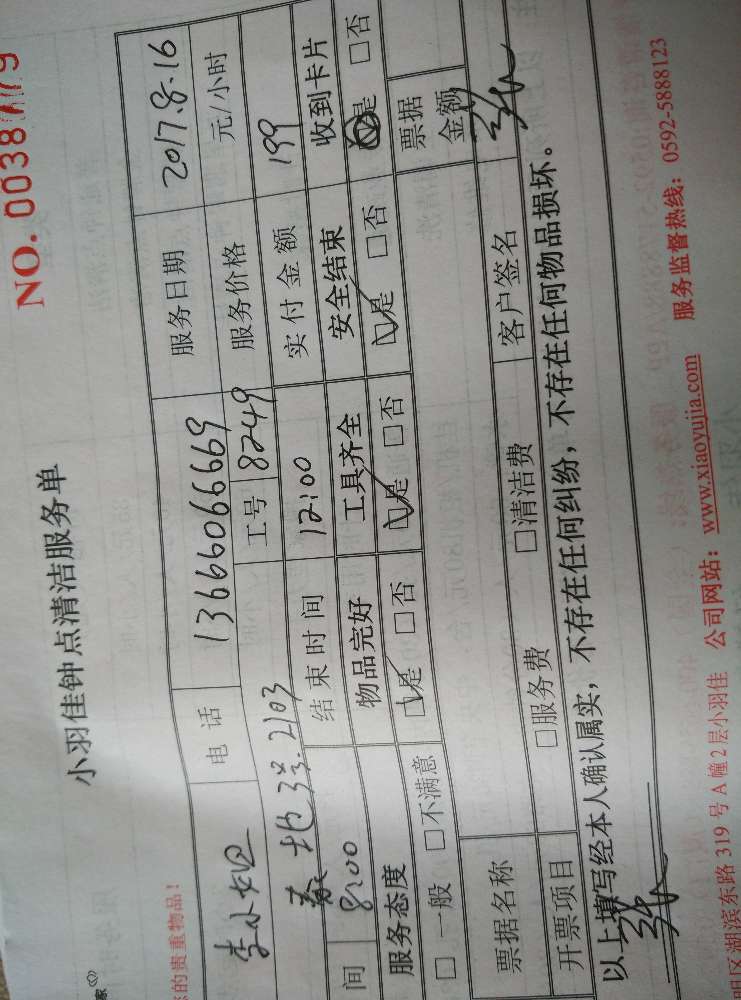 NO. 0038
小羽佳钟点清洁服务单
您的贵重物品!
李小姐 电话 13666066669 服务日期 2017.8.16
2103 工号 8249 服务价格 元/小时
间 8:00 结束时间 12:00 实付金额 199
服务态度 物品完好 工具齐全 安全结束 收到卡片
□一般 □不满意 □是 □否 □是 □否 □是 □否 是 □否
票据名称 票据金额
开票项目 □服务费 □清洁费 客户签名
以上填写经本人确认属实,不存在任何纠纷,不存在任何物品损坏。
明区湖滨东路 319 号 A 幢 2 层小羽佳 公司网站:www.xiaoyujia.com 服务监督热线:0592-5888123